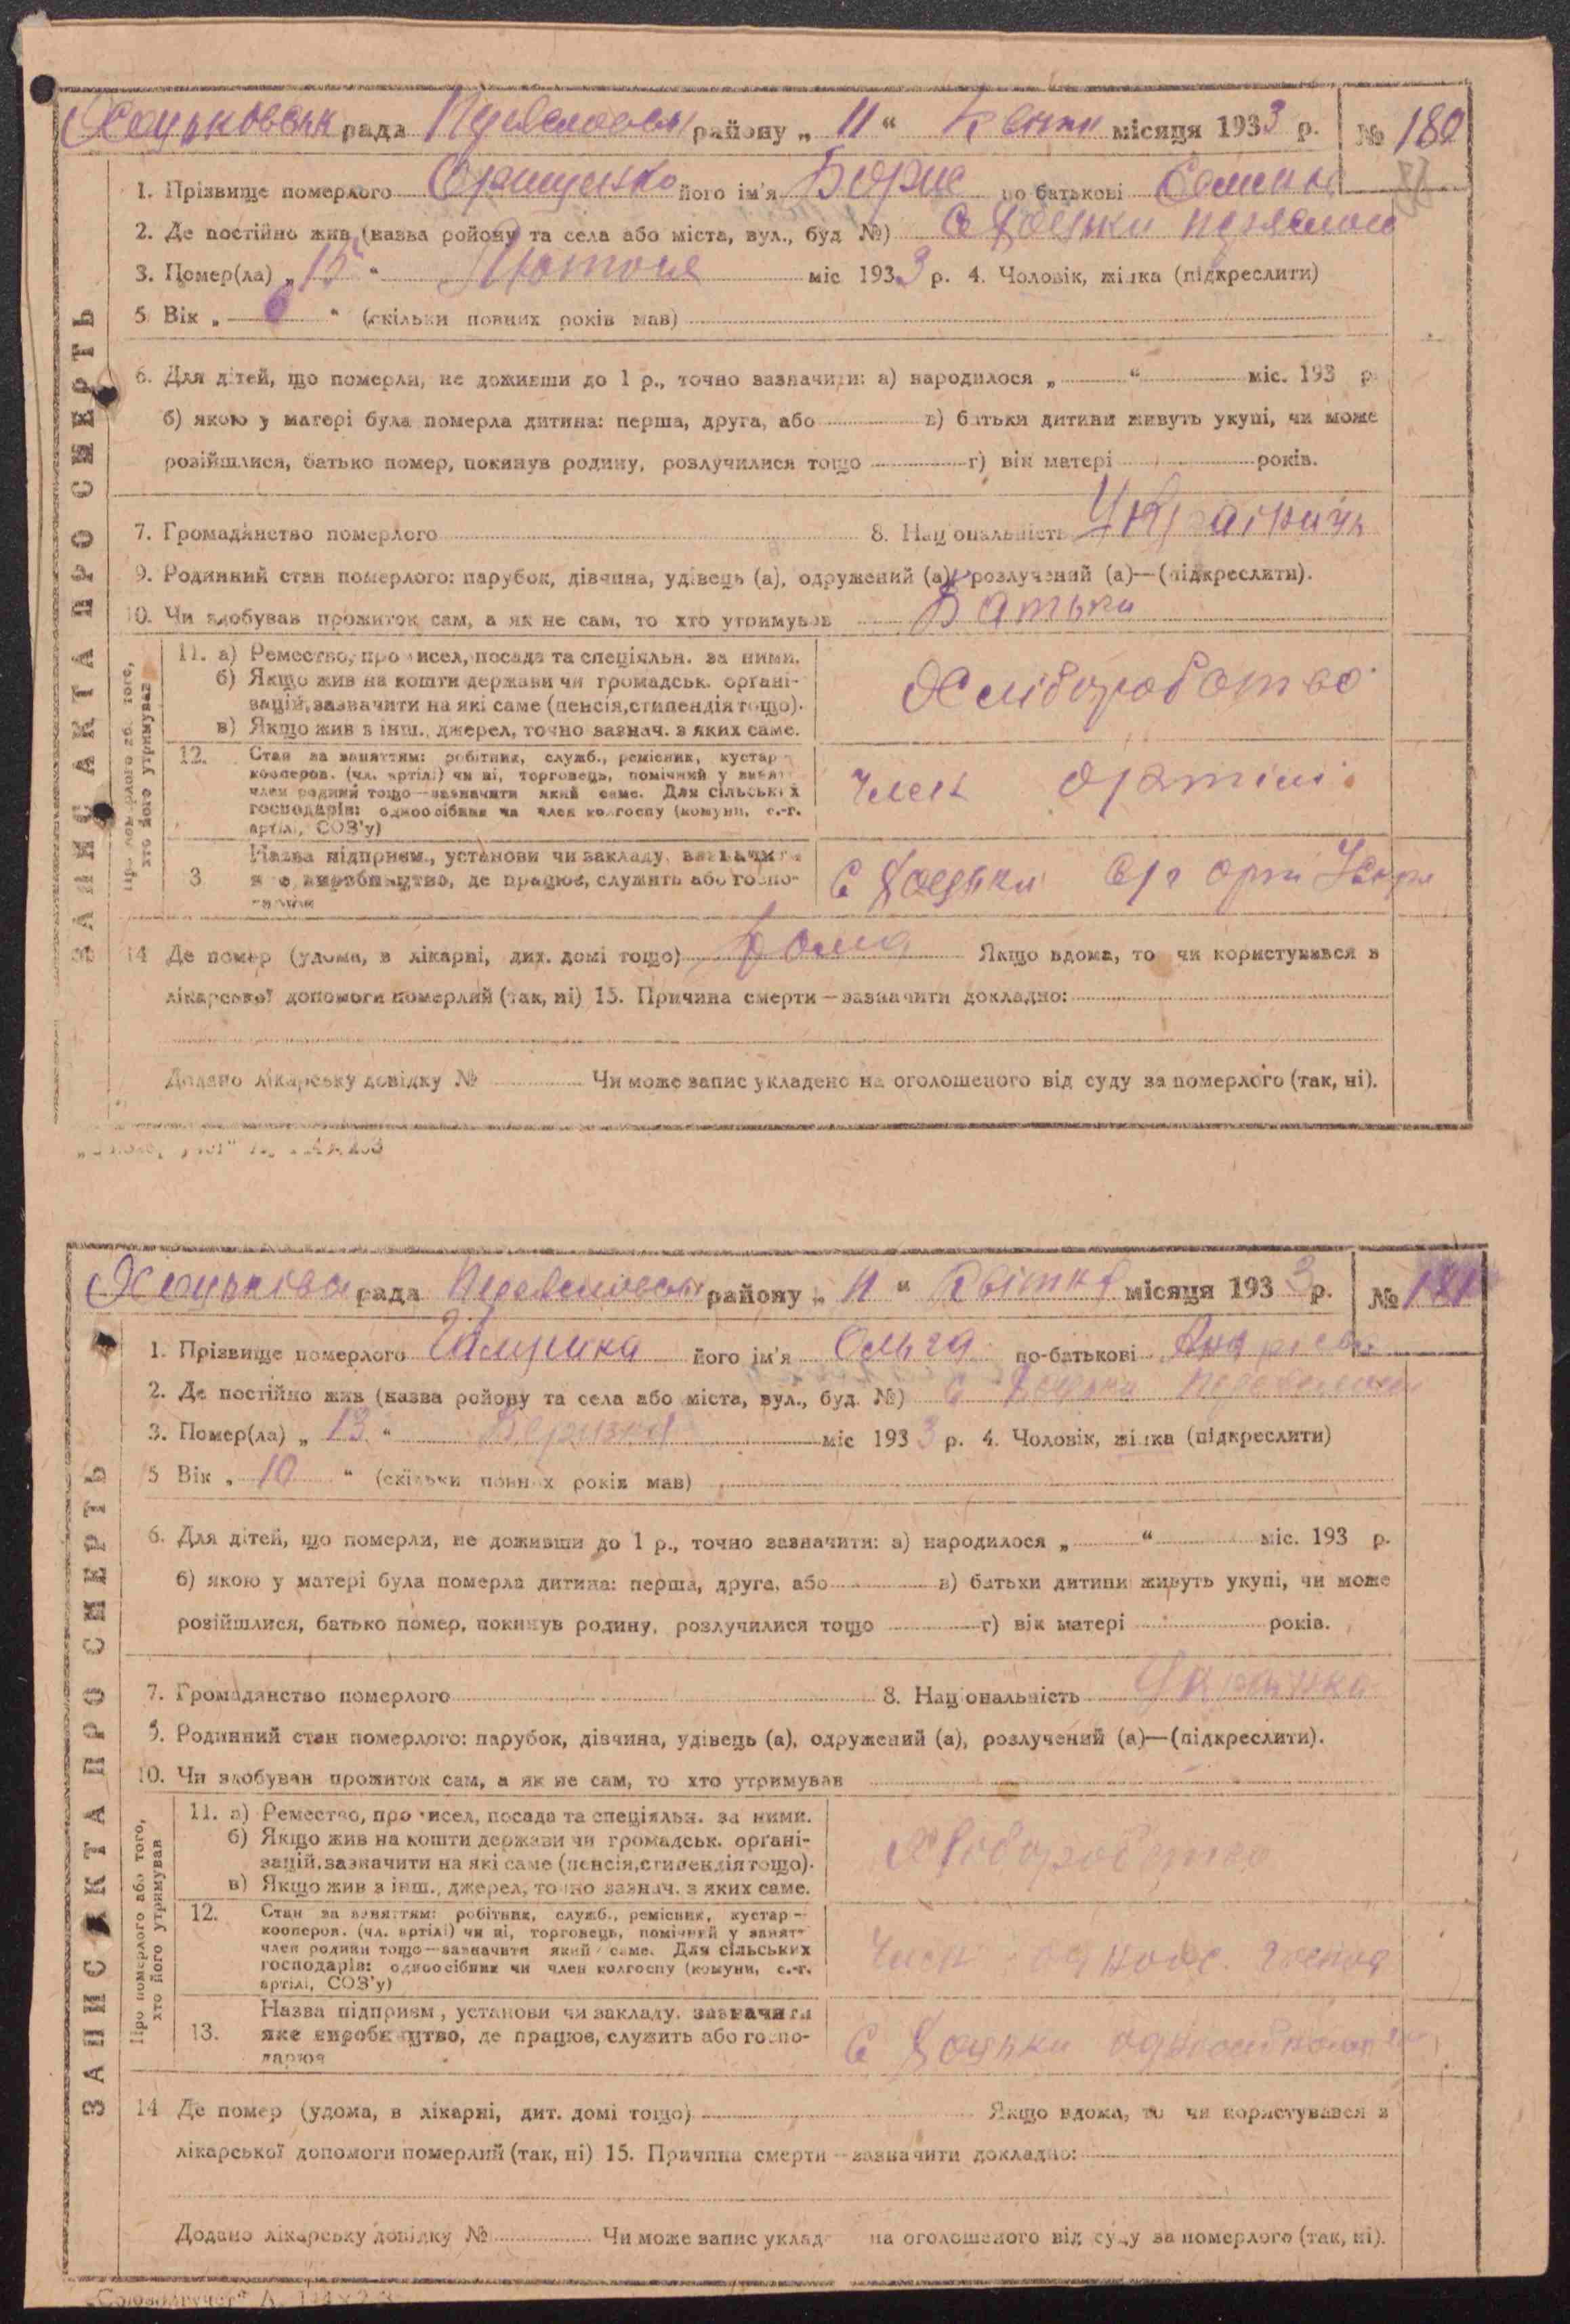 рада району „ 11 “ місяця 1933 р. № 180
1. Прізвище померлого його ім'я Борис по батькові
2. Де постійно жив (назва ройону та села або міста, вул., буд №) с
3. Помер(ла) „ 15 “ Лютоне міс 1933 р. 4. Чоловік, жінка (підкреслити)
5 Вік „ 6 “ (скільки повних років мав)
6. Для дітей, що померли, не доживши до 1 р., точно зазначити: а) народилося „ “ міс. 193 р.
б) якою у матері була померла дитина: перша, друга, або в) батьки дитини живуть укупі, чи може
розійшлися, батько помер, покинув родину, розлучилися тощо г) вік матері років.
7. Громадянство померлого 8. Національність
9. Родинний стан померлого: парубок, дівчина, удівець (а), одружений (а), розлучений (а)—(підкреслити).
10. Чи здобував прожиток сам, а як не сам, то хто утримував Батьки
ЗАПИС АКТА ПРО СМЕРТЬ
Про померлого або того, хто його утримував
11. а) Ремество, промисел, посада та спеціяльн. за ними.
б) Якщо жив на кошти держави чи громадськ. органі-
зацій, зазначити на які саме (пенсія, стипендія тощо).
в) Якщо жив з інш., джерел, точно зазнач. з яких саме.
Хліборобство
12. Стан за заняттям: робітник, служб., ремісник, кустар-
кооперов. (чл. артілі) чи ні, торговець, помічний у занят
член родини тощо—зазначити який саме. Для сільських
господарів: одноосібник чи член колгоспу (комуни, с.-г.
артілі, СОЗ'у)
Член артілі
3 Назва підприєм., установи чи закладу, зазначити
яке виробництво, де працює, служить або госпо-
дарює
14 Де помер (удома, в лікарні, дит. домі тощо) Дома Якщо вдома, то чи користувався з
лікарської допомоги померлий (так, ні) 15. Причина смерти—зазначити докладно:
Додано лікарську довідку № Чи може запис укладено на оголошеного від суду за померлого (так, ні).
рада району „ 11 “ Квітня місяця 1933 р. № 181
1. Прізвище померлого його ім'я Ольга по-батькові
2. Де постійно жив (назва ройону та села або міста, вул., буд. №) с
3. Помер(ла) „ 13 “ Березня міс 1933 р. 4. Чоловік, жінка (підкреслити)
5 Вік „ 10 “ (скільки повних років мав)
6. Для дітей, що померли, не доживши до 1 р., точно зазначити: а) народилося „ “ міс. 193 р.
б) якою у матері була померла дитина: перша, друга, або в) батьки дитини живуть укупі, чи може
розійшлися, батько помер, покинув родину, розлучилися тощо г) вік матері років.
7. Громадянство померлого 8. Національність Українка
9. Родинний стан померлого: парубок, дівчина, удівець (а), одружений (а), розлучений (а)—(підкреслити).
10. Чи здобував прожиток сам, а як не сам, то хто утримував
ЗАПИС АКТА ПРО СМЕРТЬ
Про померлого або того, хто його утримував
11. а) Ремество, промисел, посада та спеціяльн. за ними.
б) Якщо жив на кошти держави чи громадськ. органі-
зацій, зазначити на які саме (пенсія, стипендія тощо).
в) Якщо жив з інш., джерел, точно зазнач. з яких саме.
Хліборобство
12. Стан за заняттям: робітник, служб., ремісник, кустар-
кооперов. (чл. артілі) чи ні, торговець, помічний у занят
член родини тощо—зазначити який саме. Для сільських
господарів: одноосібник чи член колгоспу (комуни, с.-г.
артілі, СОЗ'у)
Член
13. Назва підприєм, установи чи закладу. зазначити
яке виробництво, де працює, служить або госпо-
дарює
14 Де помер (удома, в лікарні, дит. домі тощо) Якщо вдома, то чи користувався з
лікарської допомоги померлий (так, ні) 15. Причина смерти—зазначити докладно:
Додано лікарську довідку № Чи може запис уклад на оголошеного від суду за померлого (так, ні).